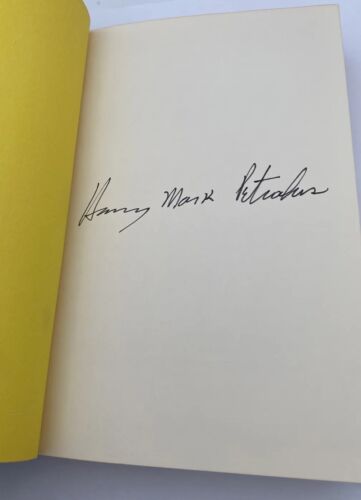 Harry Mark Petrakis